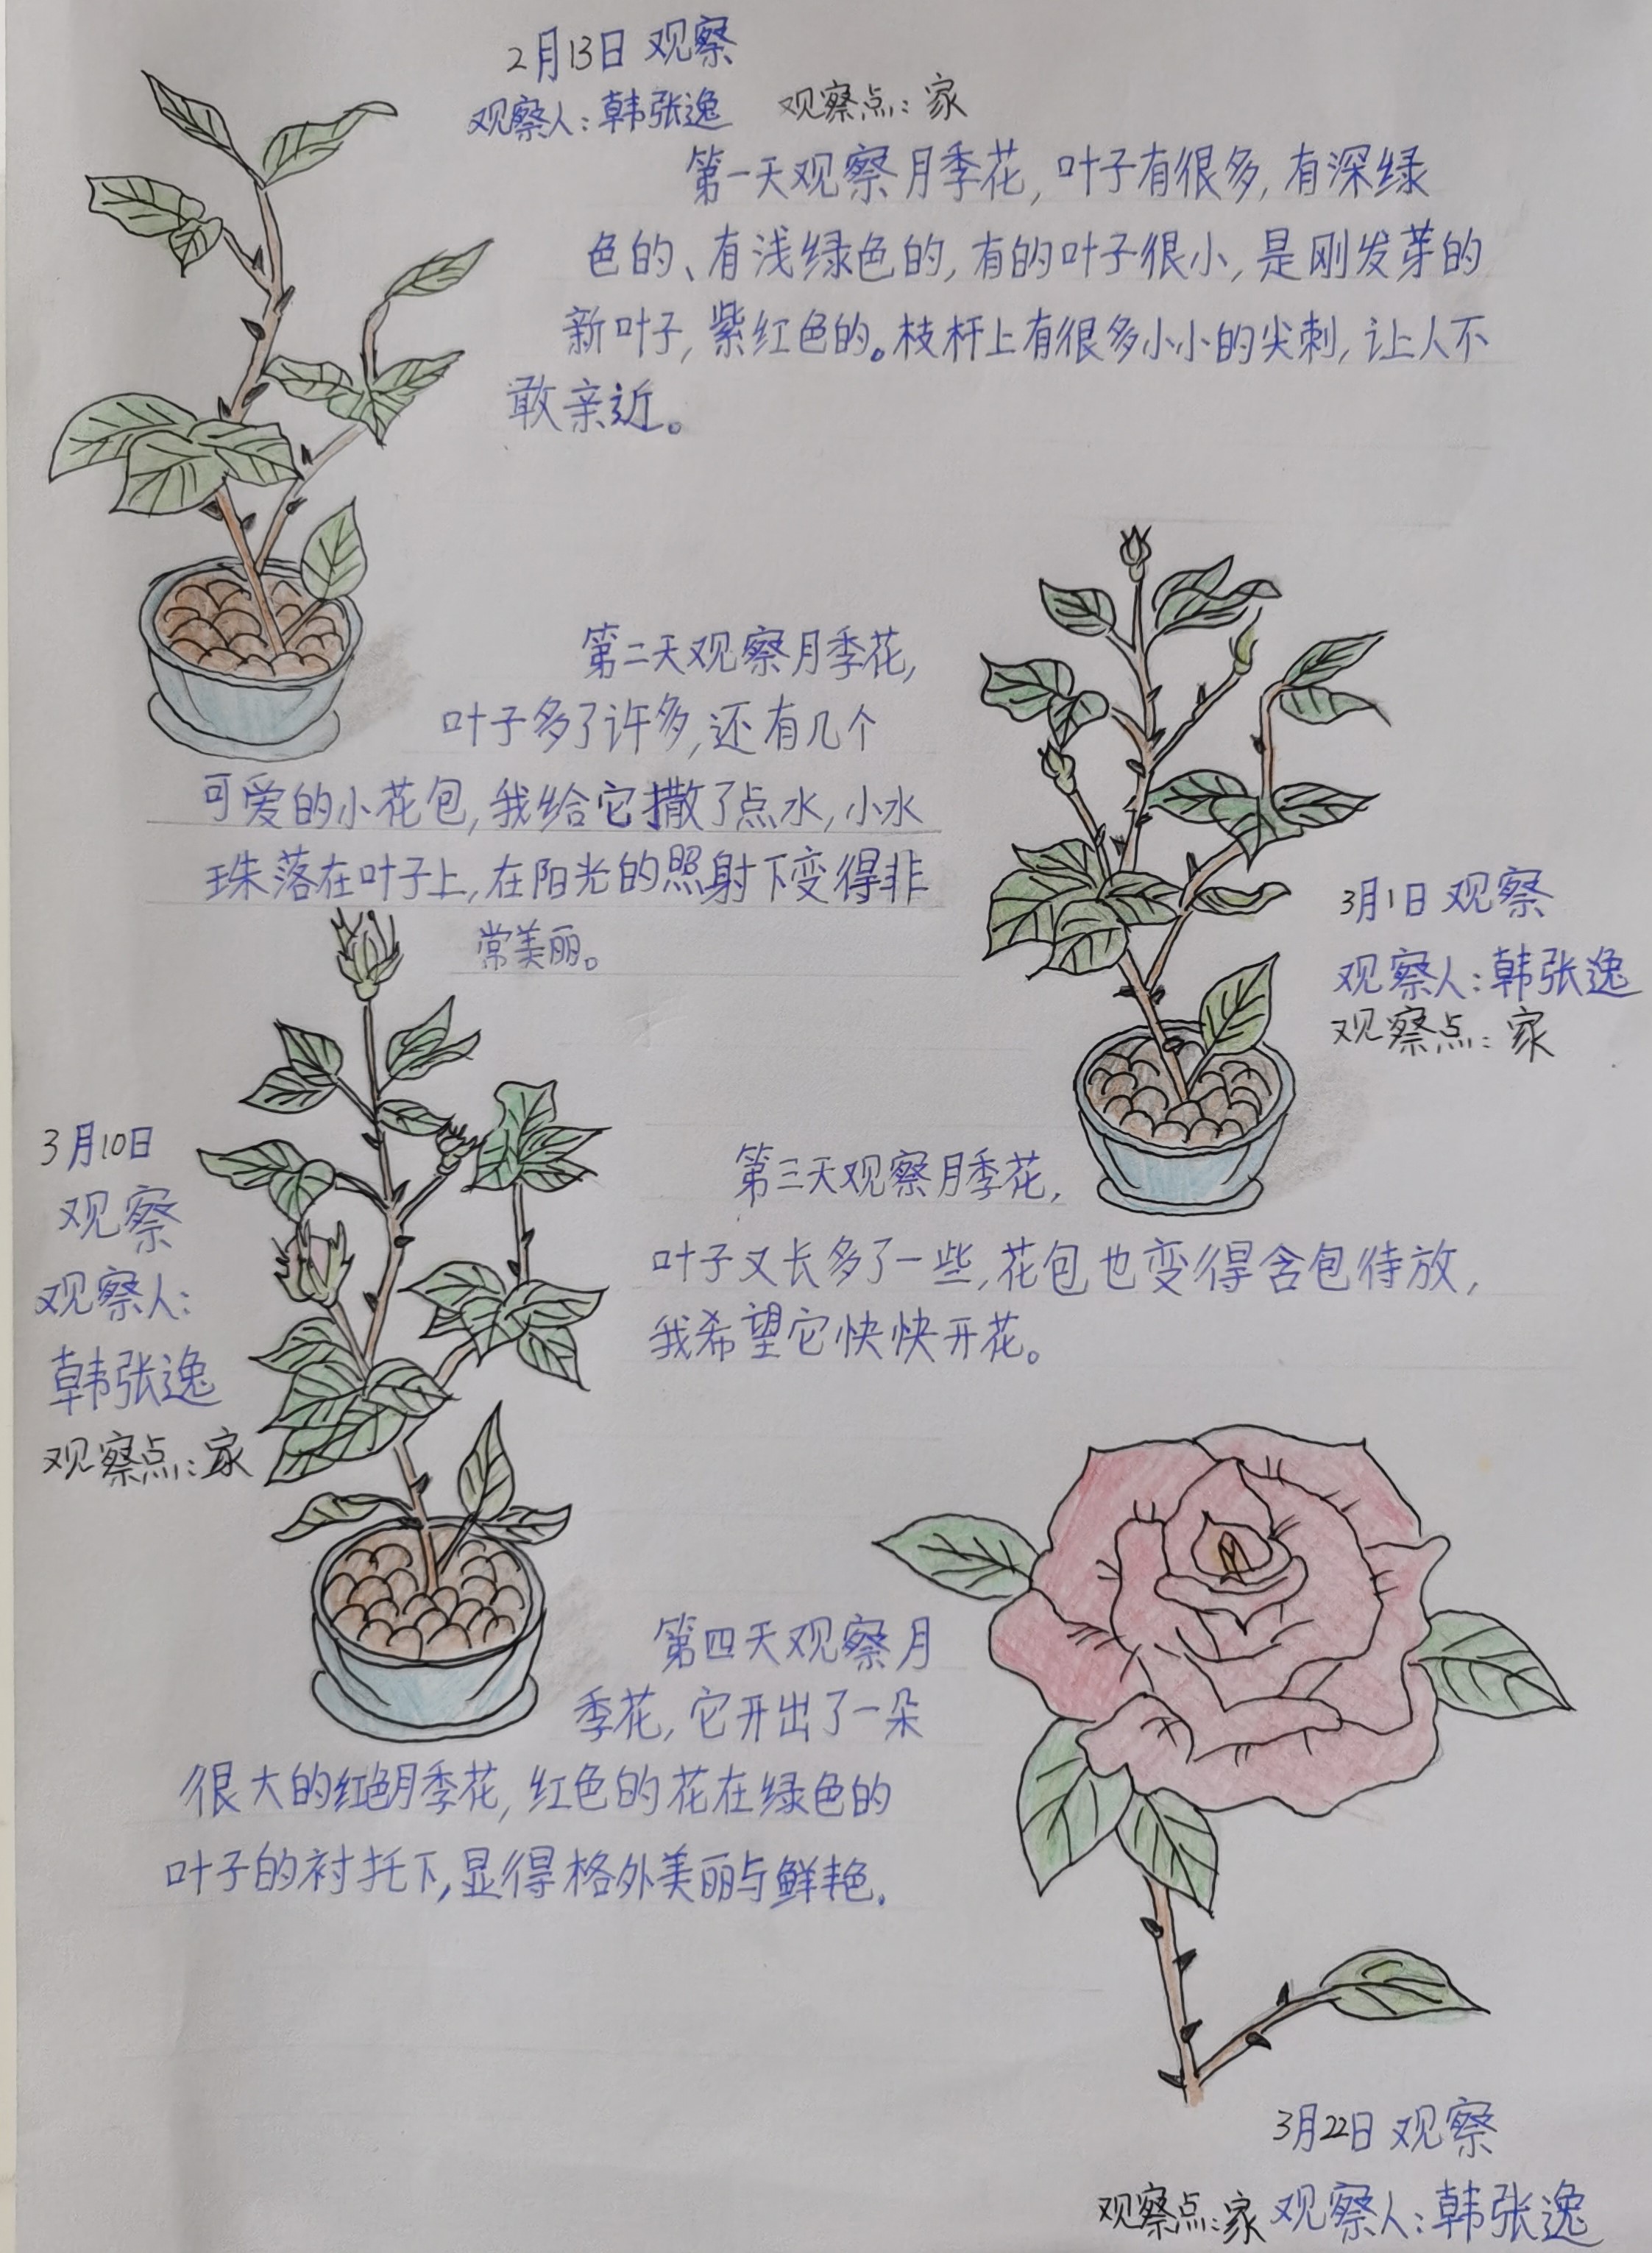 2月13日 观察
观察人:韩张逸 观察点:家
第一天观察月季花,叶子有很多,有深绿
色的、有浅绿色的,有的叶子很小,是刚发芽的
新叶子,紫红色的。枝杆上有很多小小的尖刺,让人不
敢亲近。
第二天观察月季花,
叶子多了许多,还有几个
可爱的小花包,我给它撒了点水,小水
珠落在叶子上,在阳光的照射下变得非
常美丽。
3月1日 观察
观察人:韩张逸
观察点:家
3月10日
观察
观察人:
韩张逸
观察点:家
第三天观察月季花,
叶子又长多了一些,花包也变得含包待放,
我希望它快快开花。
第四天观察月
季花,它开出了一朵
很大的红色月季花,红色的花在绿色的
叶子的衬托下,显得格外美丽与鲜艳.
3月22日 观察
观察点:家 观察人:韩张逸